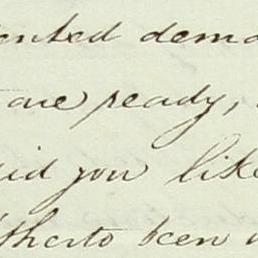 ented dema
are ready,
id you like
itherto been